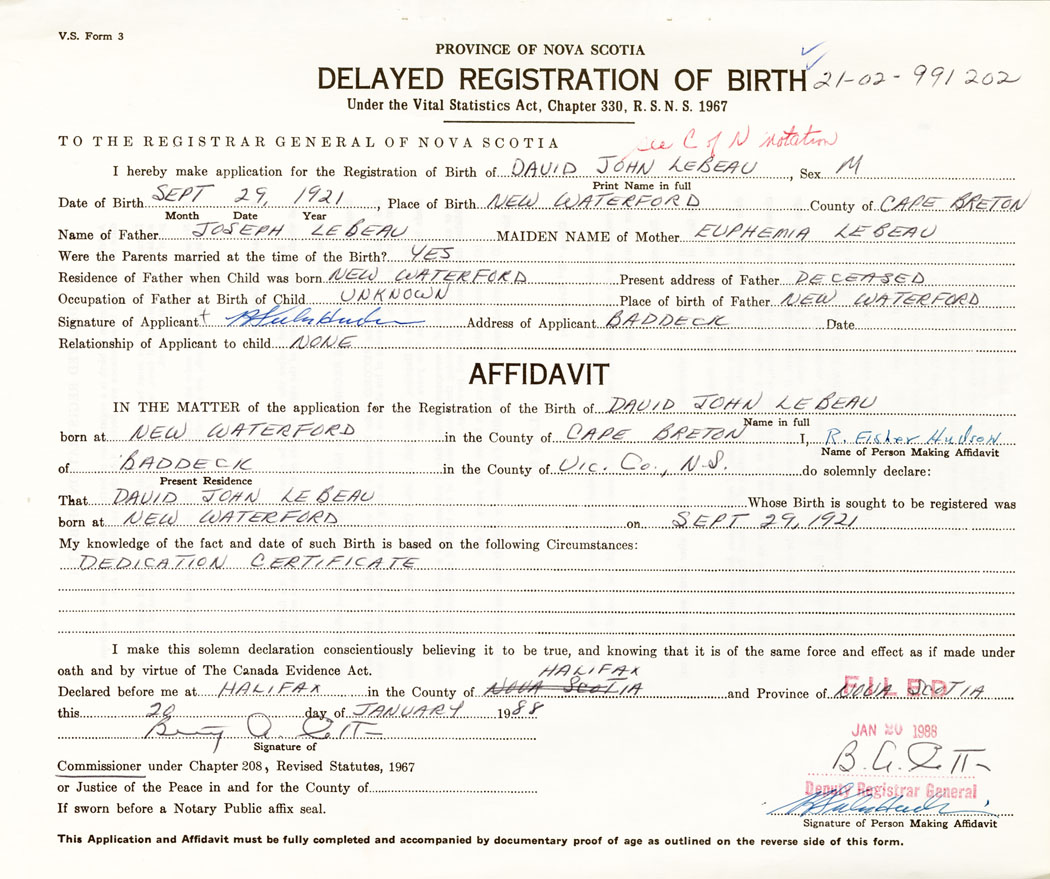 V.S. Form 3
PROVINCE OF NOVA SCOTIA
DELAYED REGISTRATION OF BIRTH 21-02-991202
Under the Vital Statistics Act, Chapter 330, R.S.N.S. 1967
TO THE REGISTRAR GENERAL OF NOVA SCOTIA see C of N notation
I hereby make application for the Registration of Birth of DAVID JOHN LEBEAU, Sex M
Print Name in full
Date of Birth SEPT 29, 1921, Place of Birth NEW WATERFORD County of CAPE BRETON
Month Date Year
Name of Father JOSEPH LEBEAU MAIDEN NAME of Mother EUPHEMIA LEBEAU
Were the Parents married at the time of the Birth? YES
Residence of Father when Child was born NEW WATERFORD Present address of Father DECEASED
Occupation of Father at Birth of Child UNKNOWN Place of birth of Father NEW WATERFORD
Signature of Applicant† R Fisher Hudson Address of Applicant BADDECK Date
Relationship of Applicant to child NONE
AFFIDAVIT
IN THE MATTER of the application for the Registration of the Birth of DAVID JOHN LEBEAU
Name in full
born at NEW WATERFORD in the County of CAPE BRETON I, R. Fisher Hudson
Name of Person Making Affidavit
of BADDECK in the County of Vic. Co., N.S. do solemnly declare:
Present Residence
That DAVID JOHN LEBEAU Whose Birth is sought to be registered was
born at NEW WATERFORD on SEPT 29, 1921
My knowledge of the fact and date of such Birth is based on the following Circumstances:
DEDICATION CERTIFICATE
I make this solemn declaration conscientiously believing it to be true, and knowing that it is of the same force and effect as if made under
oath and by virtue of The Canada Evidence Act. HALIFAX
Declared before me at HALIFAX in the County of NOVA SCOTIA and Province of NOVA SCOTIA
FILED
this 20 day of JANUARY 1988
JAN 20 1988
Signature of
Commissioner under Chapter 208, Revised Statutes, 1967
or Justice of the Peace in and for the County of
Deputy Registrar General
If sworn before a Notary Public affix seal.
R Fisher Hudson
Signature of Person Making Affidavit
This Application and Affidavit must be fully completed and accompanied by documentary proof of age as outlined on the reverse side of this form.